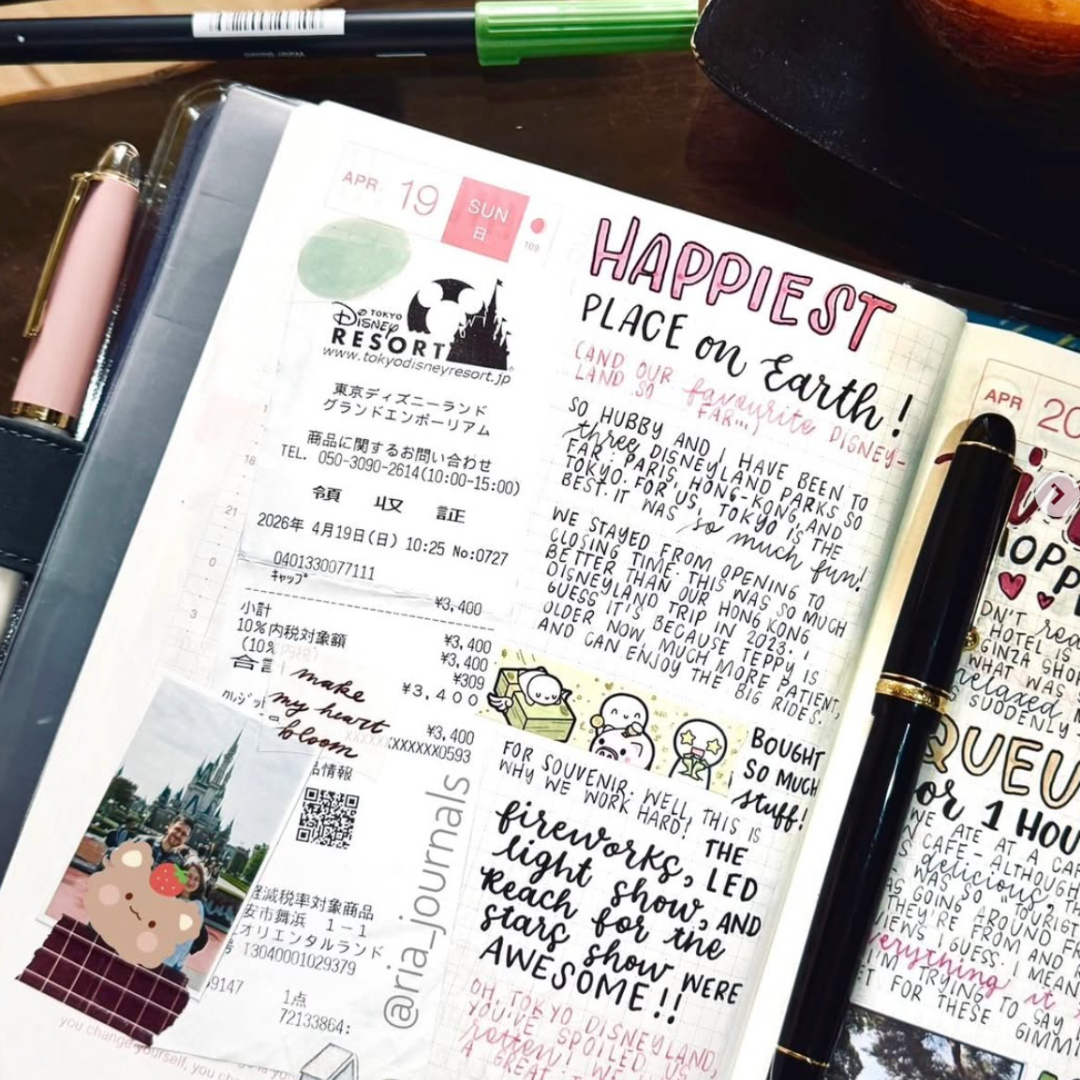 APR 19 SUN
日
109
TOKYO
Disney
RESORT
www.tokyodisneyresort.jp
東京ディズニーランド
グランドエンポーリアム
商品に関するお問い合わせ
TEL. 050-3090-2614(10:00-15:00)
領 収 証
2026年 4月19日(日) 10:25 No:0727
0401330077111
ｷｬｯﾌﾟ ¥3,400
小計 ¥3,400
10%内税対象額 ¥3,400
(10% ¥309
合計 ¥3,400
¥3,400
XXXXXXXXXXX0593
make
my heart
bloom
品情報
軽減税率対象商品
安市舞浜 1-1
オリエンタルランド
T3040001029379
9147 1点
72133864:
18
21
0
3
you change yourself, you
@ria_journals
HAPPIEST
PLACE on Earth!
(AND OUR favourite DISNEY-
LAND SO FAR...)
SO HUBBY AND I HAVE BEEN TO
three DISNEYLAND PARKS SO
FAR: PARIS, HONG-KONG, AND
TOKYO. FOR US, TOKYO IS THE
BEST. IT WAS so much fun!
WE STAYED FROM OPENING TO
CLOSING TIME. THIS WAS SO MUCH
BETTER THAN OUR HONG KONG
DISNEYLAND TRIP IN 2023. I
GUESS IT'S BECAUSE TEPPY IS
OLDER NOW, MUCH MORE PATIENT,
AND CAN ENJOY THE BIG RIDES.
BOUGHT
SO MUCH
stuff!
FOR SOUVENIR: WELL, THIS IS
WHY WE WORK HARD! THE
fireworks, LED
light show, AND
Reach for the
stars show WERE
AWESOME!!
OH, TOKYO DISNEYLAND,
YOU'VE SPOILED US
rotten! WE
A GREAT
APR 20
HOTEL IS
GINZA SHOP
WHAT WAS
relaxed
SUDDENLY
QUEU
or 1 HOU
WE ATE AT A CAF
CAFE - ALTHOUGH
delicious, TH
WAS SO "TOURIST
GOING AROUND
THEY'RE FROM AND
VIEWS I GUESS. I MEAN
everything it
I'M TRYING TO SAY
FOR THESE GIMM